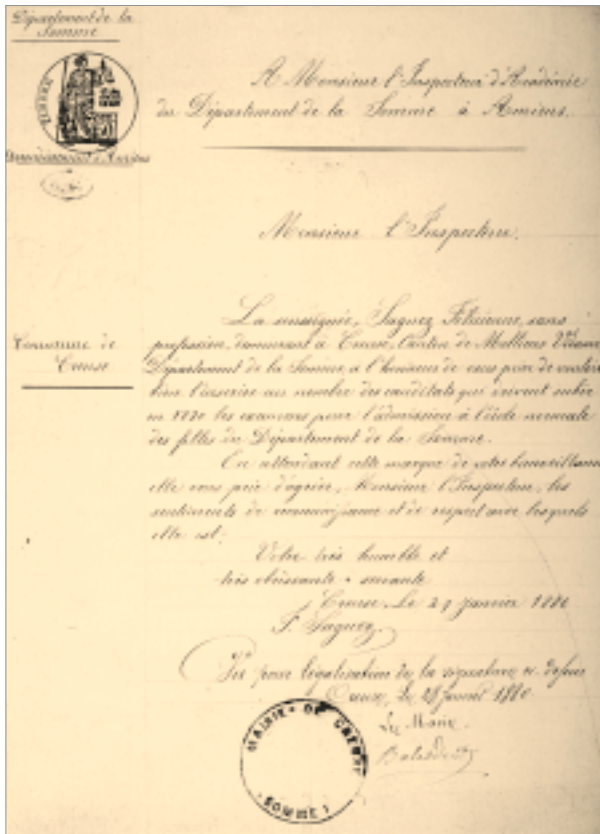 Département de la
Somme
A Monsieur l'Inspecteur d'Académie
du Département de la Somme à Amiens.
Arrondissement d'Amiens
Monsieur l'Inspecteur.
Commune de
Creuse
La soussignée, Saguez Félicienne, sans
profession, demeurant à Creuse, Canton de Molliens Vidame
Département de la Somme, a l'honneur de vous prier de vouloir
bien l'inscrire au nombre des candidats qui doivent subir
en 1880 les examens pour l'admission à l'école normale
des filles du Département de la Somme.
En attendant cette marque de votre bienveillance
elle vous prie d'agréer, Monsieur l'Inspecteur, les
sentiments de reconnaissance et de respect avec lesquels
elle est:
Votre très humble et
très obéissante servante
Creuse, le 29 janvier 1880
F. Saguez
Vu pour légalisation de la signature ci-dessus
Creuse, le janvier 1880
Le Maire
MAIRIE DE CREUSE
SOMME